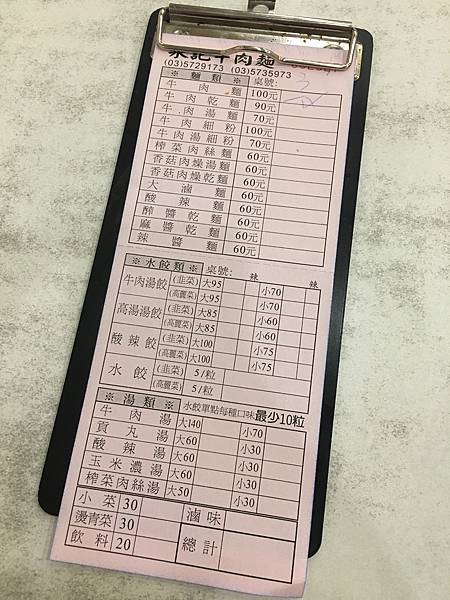 記牛肉麵
(03)5729173 (03)5735973
※ 麵 類 ※ 桌號:
牛肉麵 100元
牛肉乾麵 90元
牛肉湯麵 70元
牛肉細粉 100元
牛肉湯細粉 70元
榨菜肉絲麵 60元
香菇肉燥湯麵 60元
香菇肉燥乾麵 60元
大滷麵 60元
酸辣麵 60元
醡醬乾麵 60元
麻醬乾麵 60元
辣醬麵 60元
※水餃類※ 桌號: 辣 辣
牛肉湯餃 (韭菜) 大95 小70
(高麗菜) 大95 小70
高湯湯餃 (韭菜) 大85 小60
(高麗菜) 大85 小60
酸辣餃 (韭菜) 大100 小75
(高麗菜) 大100 小75
水餃 (韭菜) 5/粒
(高麗菜) 5/粒
※ 湯類 ※ 水餃單點每種口味最少10粒
牛肉湯 大140 小70
貢丸湯 大60 小30
酸辣湯 大60 小30
玉米濃湯 大60 小30
榨菜肉絲湯 大50 小30
小菜 30 滷味
燙青菜 30
飲料 20 總計